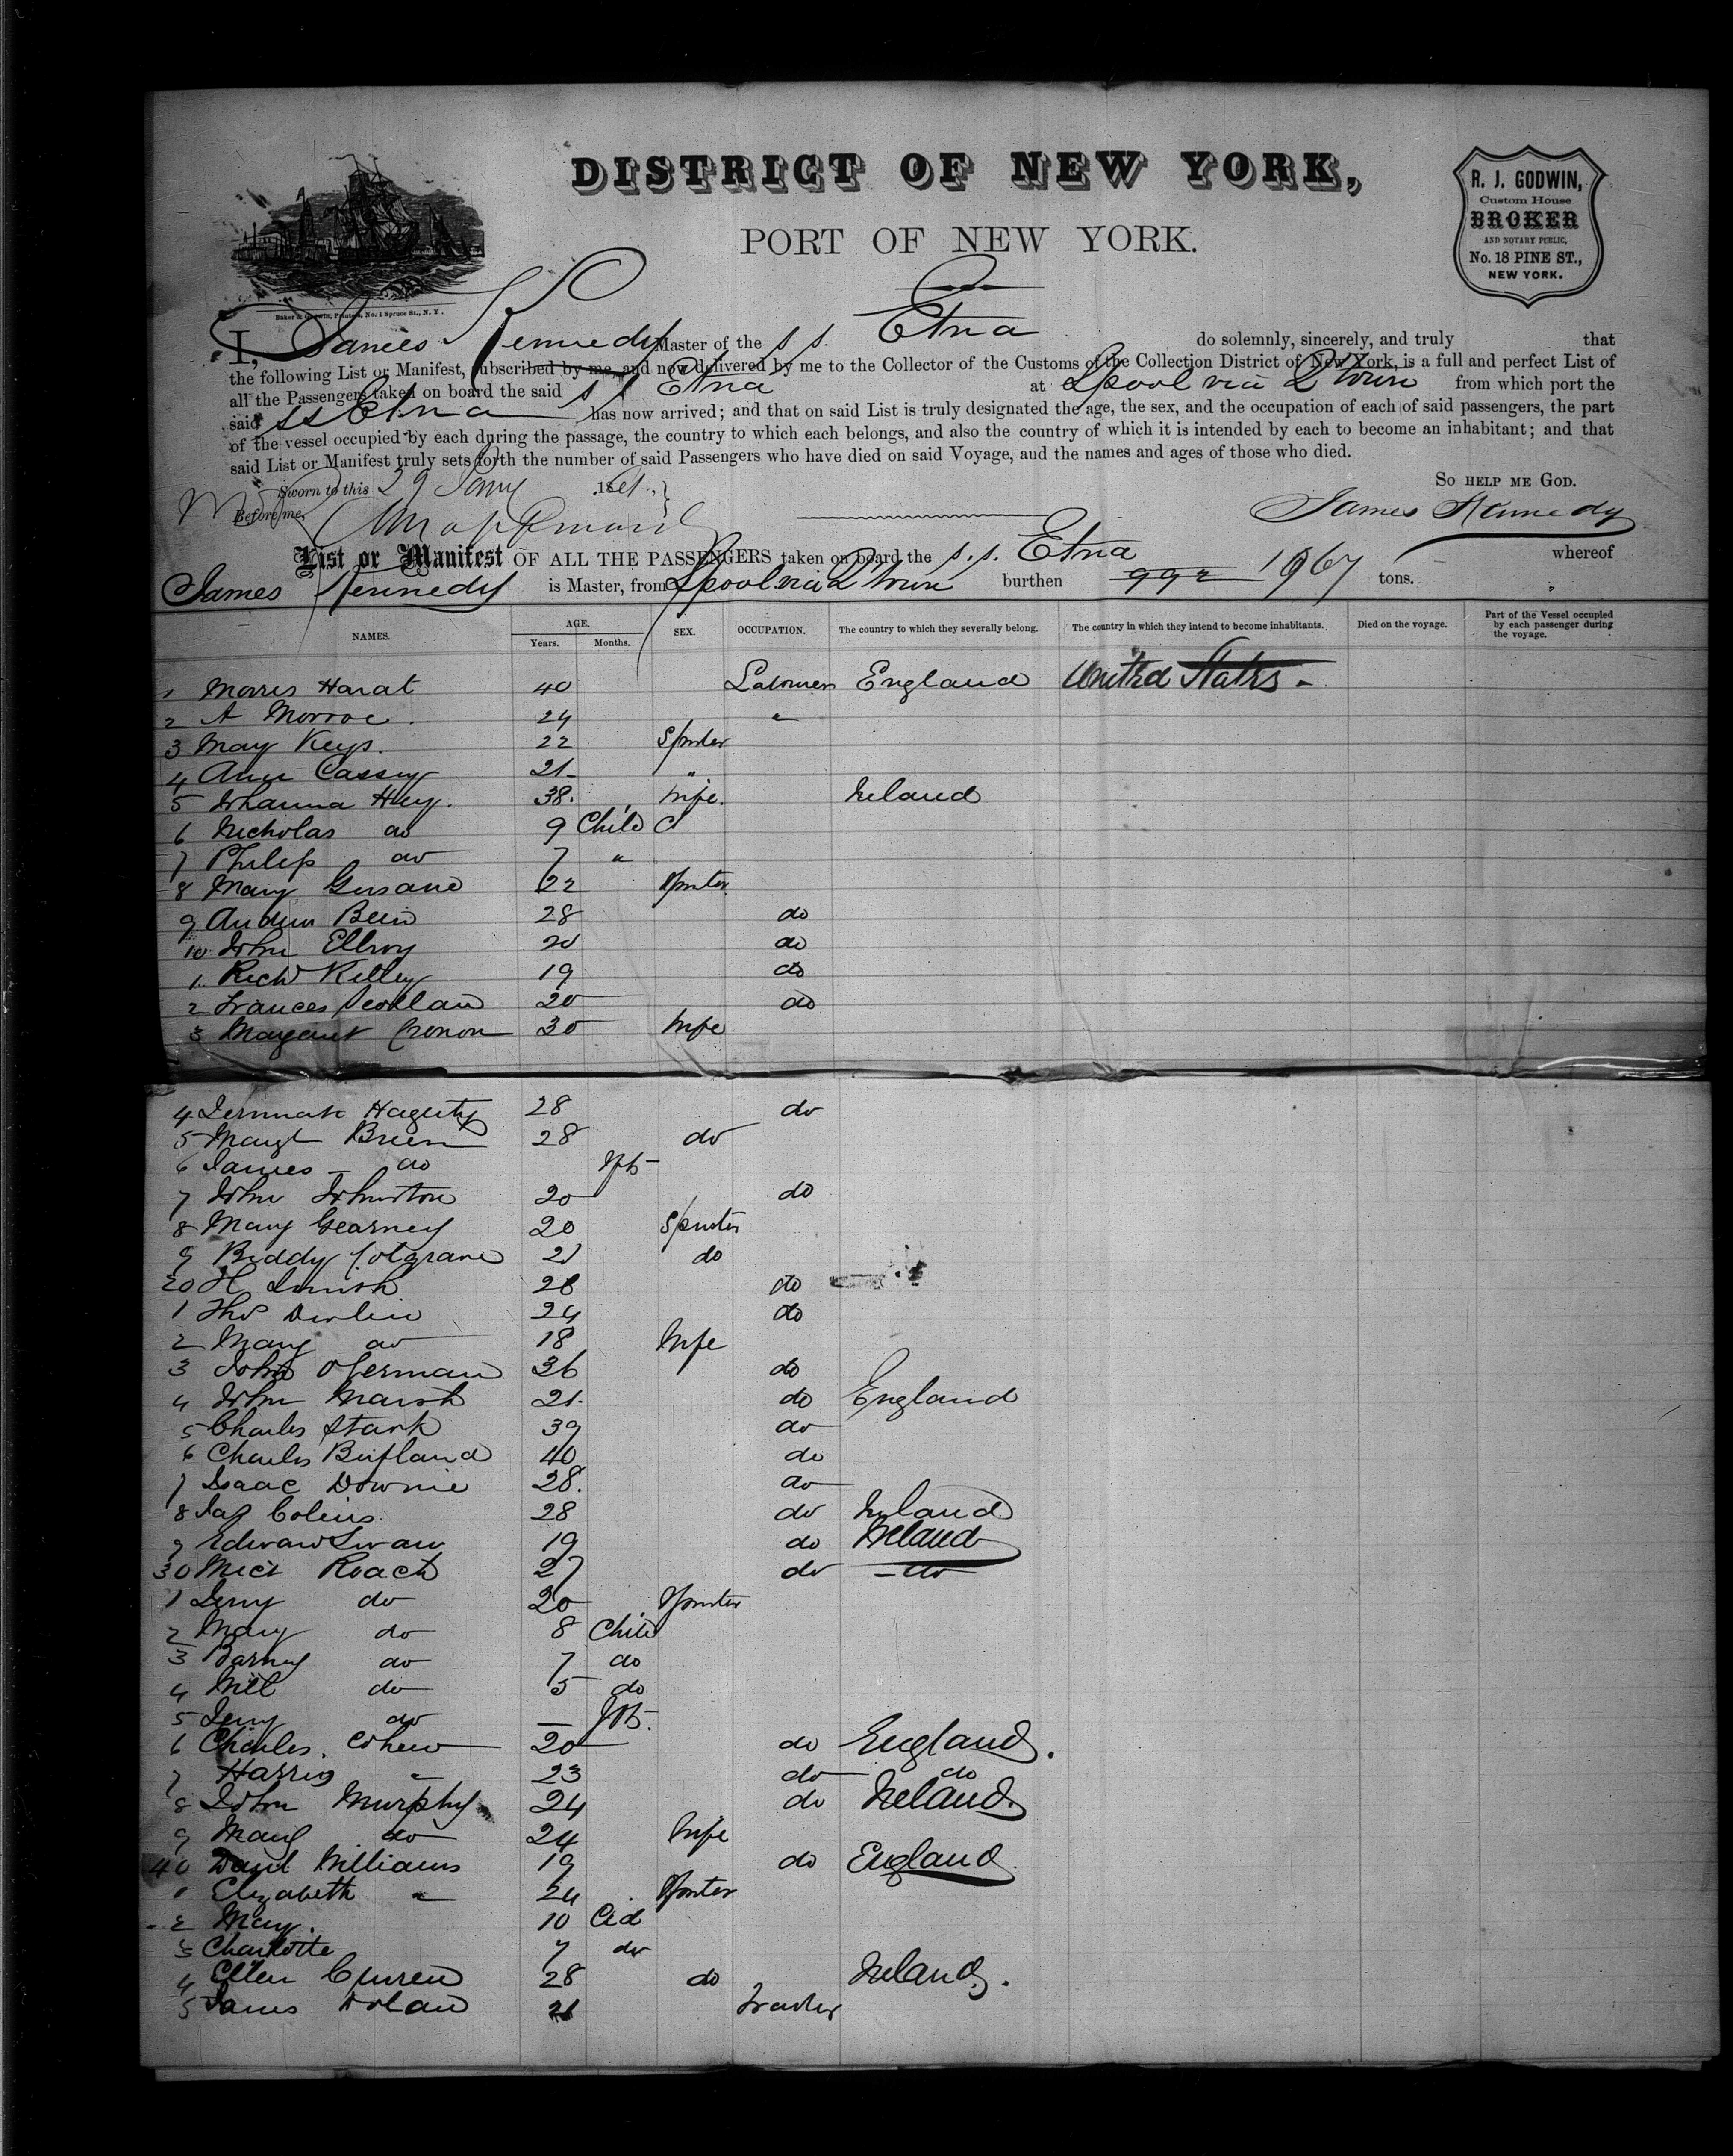 DISTRICT OF NEW YORK,
PORT OF NEW YORK.
R. J. GODWIN,
Custom House
BROKER
AND NOTARY PUBLIC,
No. 18 PINE ST.,
NEW YORK.
Baker & Godwin, Printers, No. 1 Spruce St., N. Y.
I, James Kennedy Master of the s s. Etna do solemnly, sincerely, and truly that
the following List or Manifest, subscribed by me, and now delivered by me to the Collector of the Customs of the Collection District of New York, is a full and perfect List of
all the Passengers taken on board the said s s Etna at Lpool via Qtown from which port the
said ss Etna has now arrived; and that on said List is truly designated the age, the sex, and the occupation of each of said passengers, the part
of the vessel occupied by each during the passage, the country to which each belongs, and also the country of which it is intended by each to become an inhabitant; and that
said List or Manifest truly sets forth the number of said Passengers who have died on said Voyage, and the names and ages of those who died.
So help me God.
Sworn to this 29 Jany 1861.
Before me, James Kennedy
List or Manifest OF ALL THE PASSENGERS taken on board the s. s. Etna whereof
James Kennedy is Master, from Lpool via Qtown burthen 992 1967 tons.
NAMES. AGE. Years. Months. SEX. OCCUPATION. The country to which they severally belong. The country in which they intend to become inhabitants. Died on the voyage. Part of the Vessel occupied by each passenger during the voyage.
1 Morris Harat 40 Labourer England United States -
2 A Morroe 24 "
3 May Keys. 22 Spinster
4 Ann Cassey 21 "
5 Johanna Hay. 38. Wife. Ireland
6 Nicholas do 9 Child
7 Philip do 7 "
8 Mary 22 Spinster
9 Andrew 28 do
10 John Ellroy 20 do
1 Richd Kelley 19 do
2 Frances Scotland 20 do
3 Margaret Cronon 30 Wife
4 Jermiah Hagerty 28 do
5 Margt Brien 28 do
6 James - do Inft
7 John Johnston 20 do
8 Mary Gearney 20 Spinster
9 Biddy Colgrane 21 do
20 H 28 do
1 Thos Devlin 24 do
2 Mary do 18 Wife
3 John OGerman 36 do
4 John Marsh 21. do England
5 Charles Stark 39 do
6 Charles 40 do
7 Isaac Downie 28. do
8 Jas Colins. 28 do Ireland
9 Edward Swan 19 do Ireland
30 Mick Roach 27 do - do
1 Jerry do 20 Spinster
2 Mary do 8 Child
3 Barney do 7 do
4 Will do 5 do
5 Jerry do — Inft.
6 Charles. Cohen 20 do England.
7 Harris " 23 do do
8 John Murphy 24 do Ireland.
9 Mary do 24 Wife
40 David Williams 19 do England
1 Elizabeth " 24 Spinster
2 May. 10 Cld
3 Charlotte 7 do
4 Ellen Curren 28 do Ireland.
5 James Dolan 21